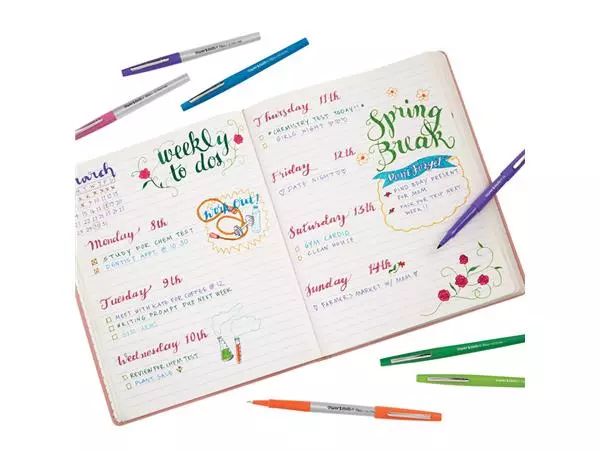 weekly
to dos
march
Monday 8th
STUDY FOR CHEM TEST
DENTIST APPT. @ 10:30
work out!
Tuesday 9th
MEET WITH KATE FOR COFFEE @ 12
WRITING PROMPT DUE NEXT WEEK
GYM
Wednesday 10th
REVIEW FOR CHEM TEST
PLANT SALE
Thursday 11th
CHEMISTRY TEST TODAY!!
GIRLS NIGHT
Friday 12th
DATE NIGHT
Saturday 13th
GYM CARDIO
CLEAN HOUSE
Sunday 14th
FARMER'S MARKET W/ MOM
Spring
Break
Don't Forget
FIND BDAY PRESENT
FOR MOM
PACK FOR TRIP NEXT
WEEK!!
Paper Mate
Paper Mate
Paper Mate
Paper Mate
Paper Mate
Paper Mate